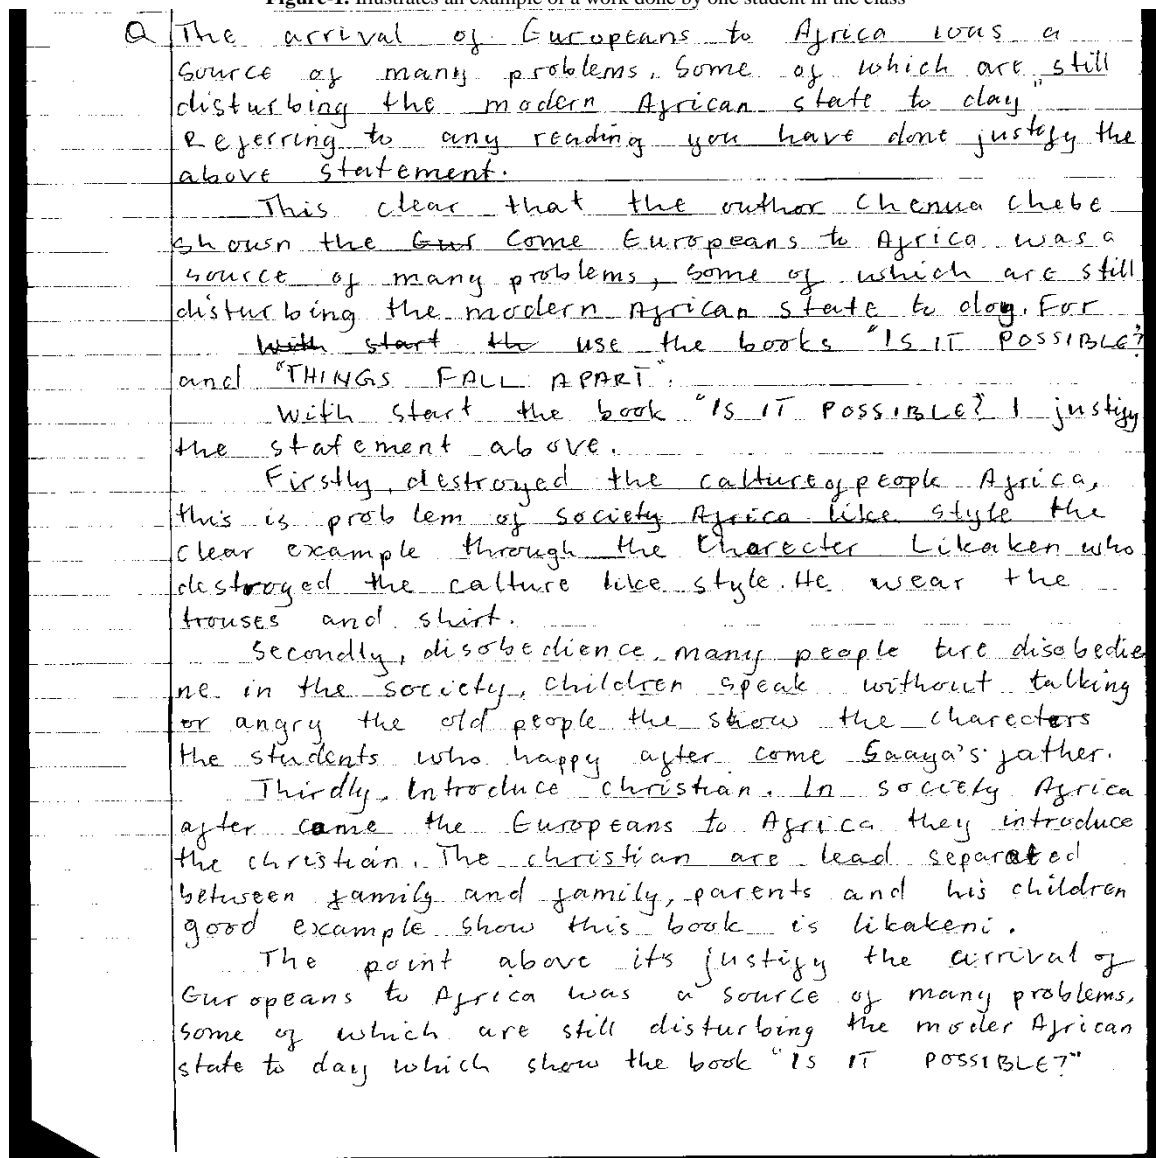 Figure-1. Illustrates an example of a work done by one student in the class
Q The arrival of Europeans to Africa was a
source of many problems, Some of which are still
disturbing the modern African state to day"
Referring to any reading you have done justify the
above statement.
This clear that the outhor Chenua chebe
shown the Eur Come Europeans to Africa was a
source of many problems, some of which are still
disturbing the modern African state to day. For
With start the use the books "IS IT POSSIBLE?
and "THINGS FALL APART".
With start the book "IS IT POSSIBLE? I justify
the statement above.
Firstly, destroyed the calture of people Africa,
this is problem of society Africa like style the
clear example through the Charecter Likaken who
destroyed the calture like style. He wear the
trouses and shirt.
Secondly, disobedience. many people are disobedie
ne in the society, children speak without talking
or angry the old people the show the charecters
the students who happy after come Saaya's father.
Thirdly. Introduce christian. In society Africa
after came the Europeans to Africa they introduce
the christian. The christian are lead separated
between family and family, parents and his children
good example show this book is likakeni.
The point above its justify the arrival of
Europeans to Africa was a source of many problems,
some of which are still disturbing the moder African
state to day which show the book "IS IT POSSIBLE?"